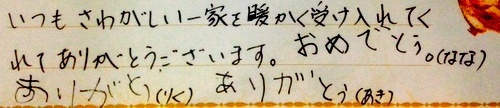 いつもさわがしい一家を暖かく受け入れてく
れてありがとうございます。おめでとう。(なな)
ありがとう(りく) ありがとう(あき)